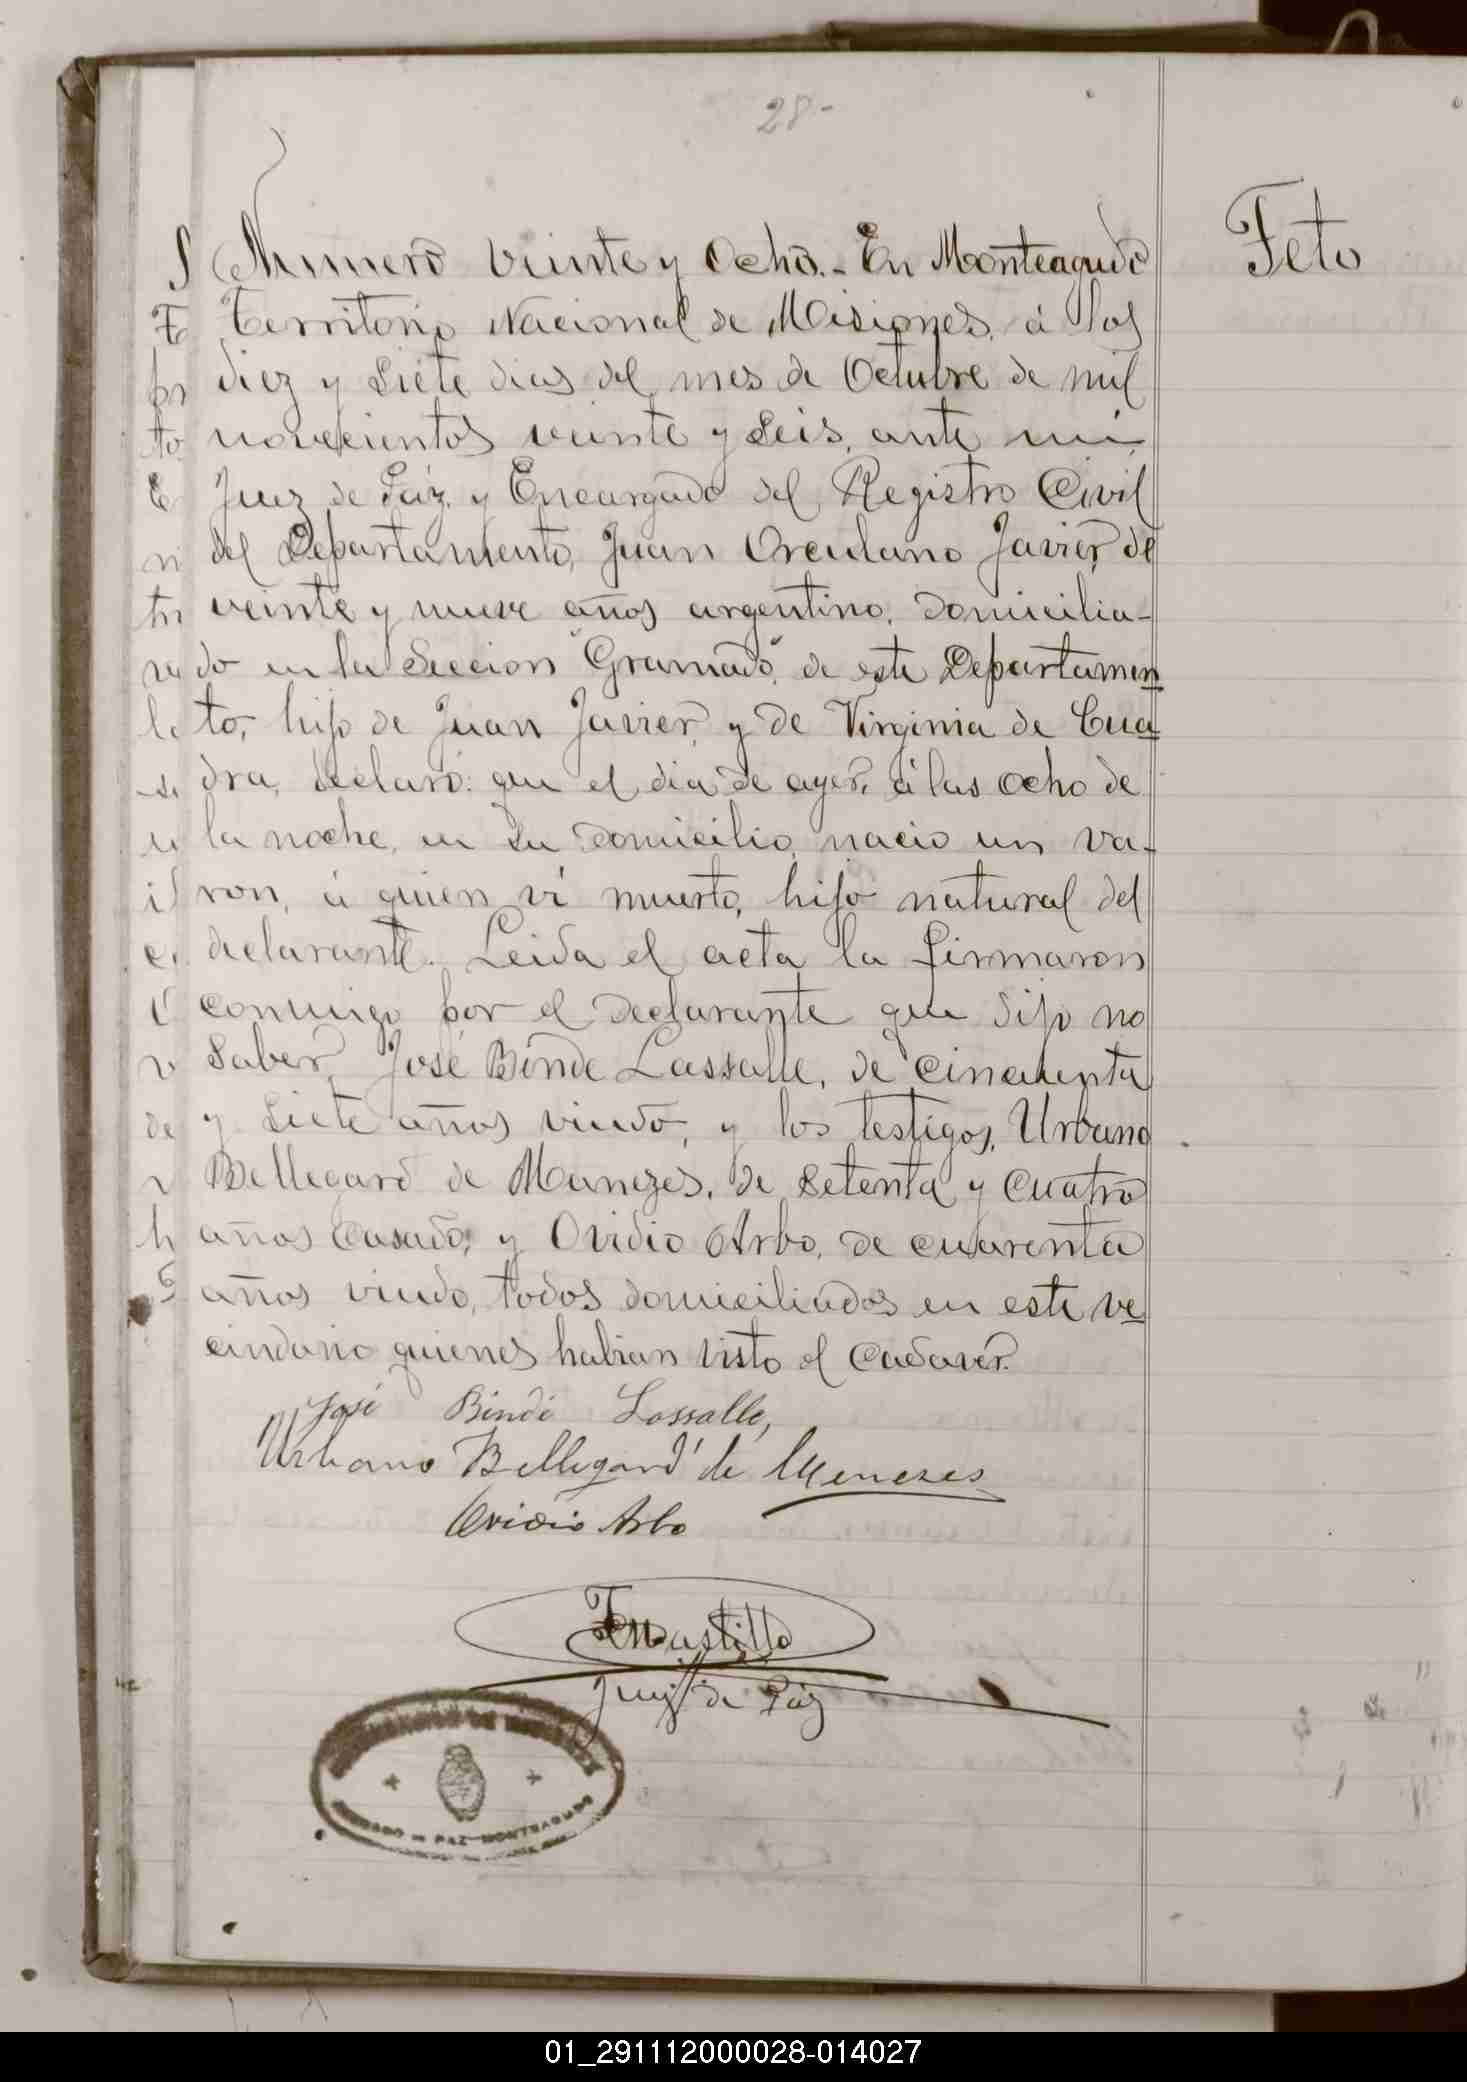 28-
Feto
Numero veinte y Ocho.- En Monteagudo
Territorio Nacional de Misiones, á los
diez y siete dias del mes de Octubre de mil
novecientos veinte y seis, ante mi
Juez de Páz, y Encargado del Registro Civil
del Departamento, Juan Orculano Javier, de
veinte y nueve años argentino, domicilia-
do en la Seccion "Gramado" de este Departamen
to, hijo de Juan Javier, y de Virginia de Cua
dra, declaró: que el dia de ayer, á las ocho de
la noche, en su domicilio, nacio un va-
ron, á quien ví muerto, hijo natural del
declarante. Leida el acta la firmaron
conmigo por el declarante que dijo no
saber, José Bindé Lassalle, de cincuenta
y siete años viudo, y los testigos, Urbano
Bellegard de Manezes, de setenta y cuatro
años casado, y Ovidio Arbo, de cuarenta
años viudo, todos domiciliados en este ve
cindario quienes habian visto el cadaver.
José Bindé Lassalle,
Urbano Bellegard de Menezes
Ovidio Arbo
Juez de Páz
JUZGADO DE PAZ MONTEAGUDO
01_291112000028-014027